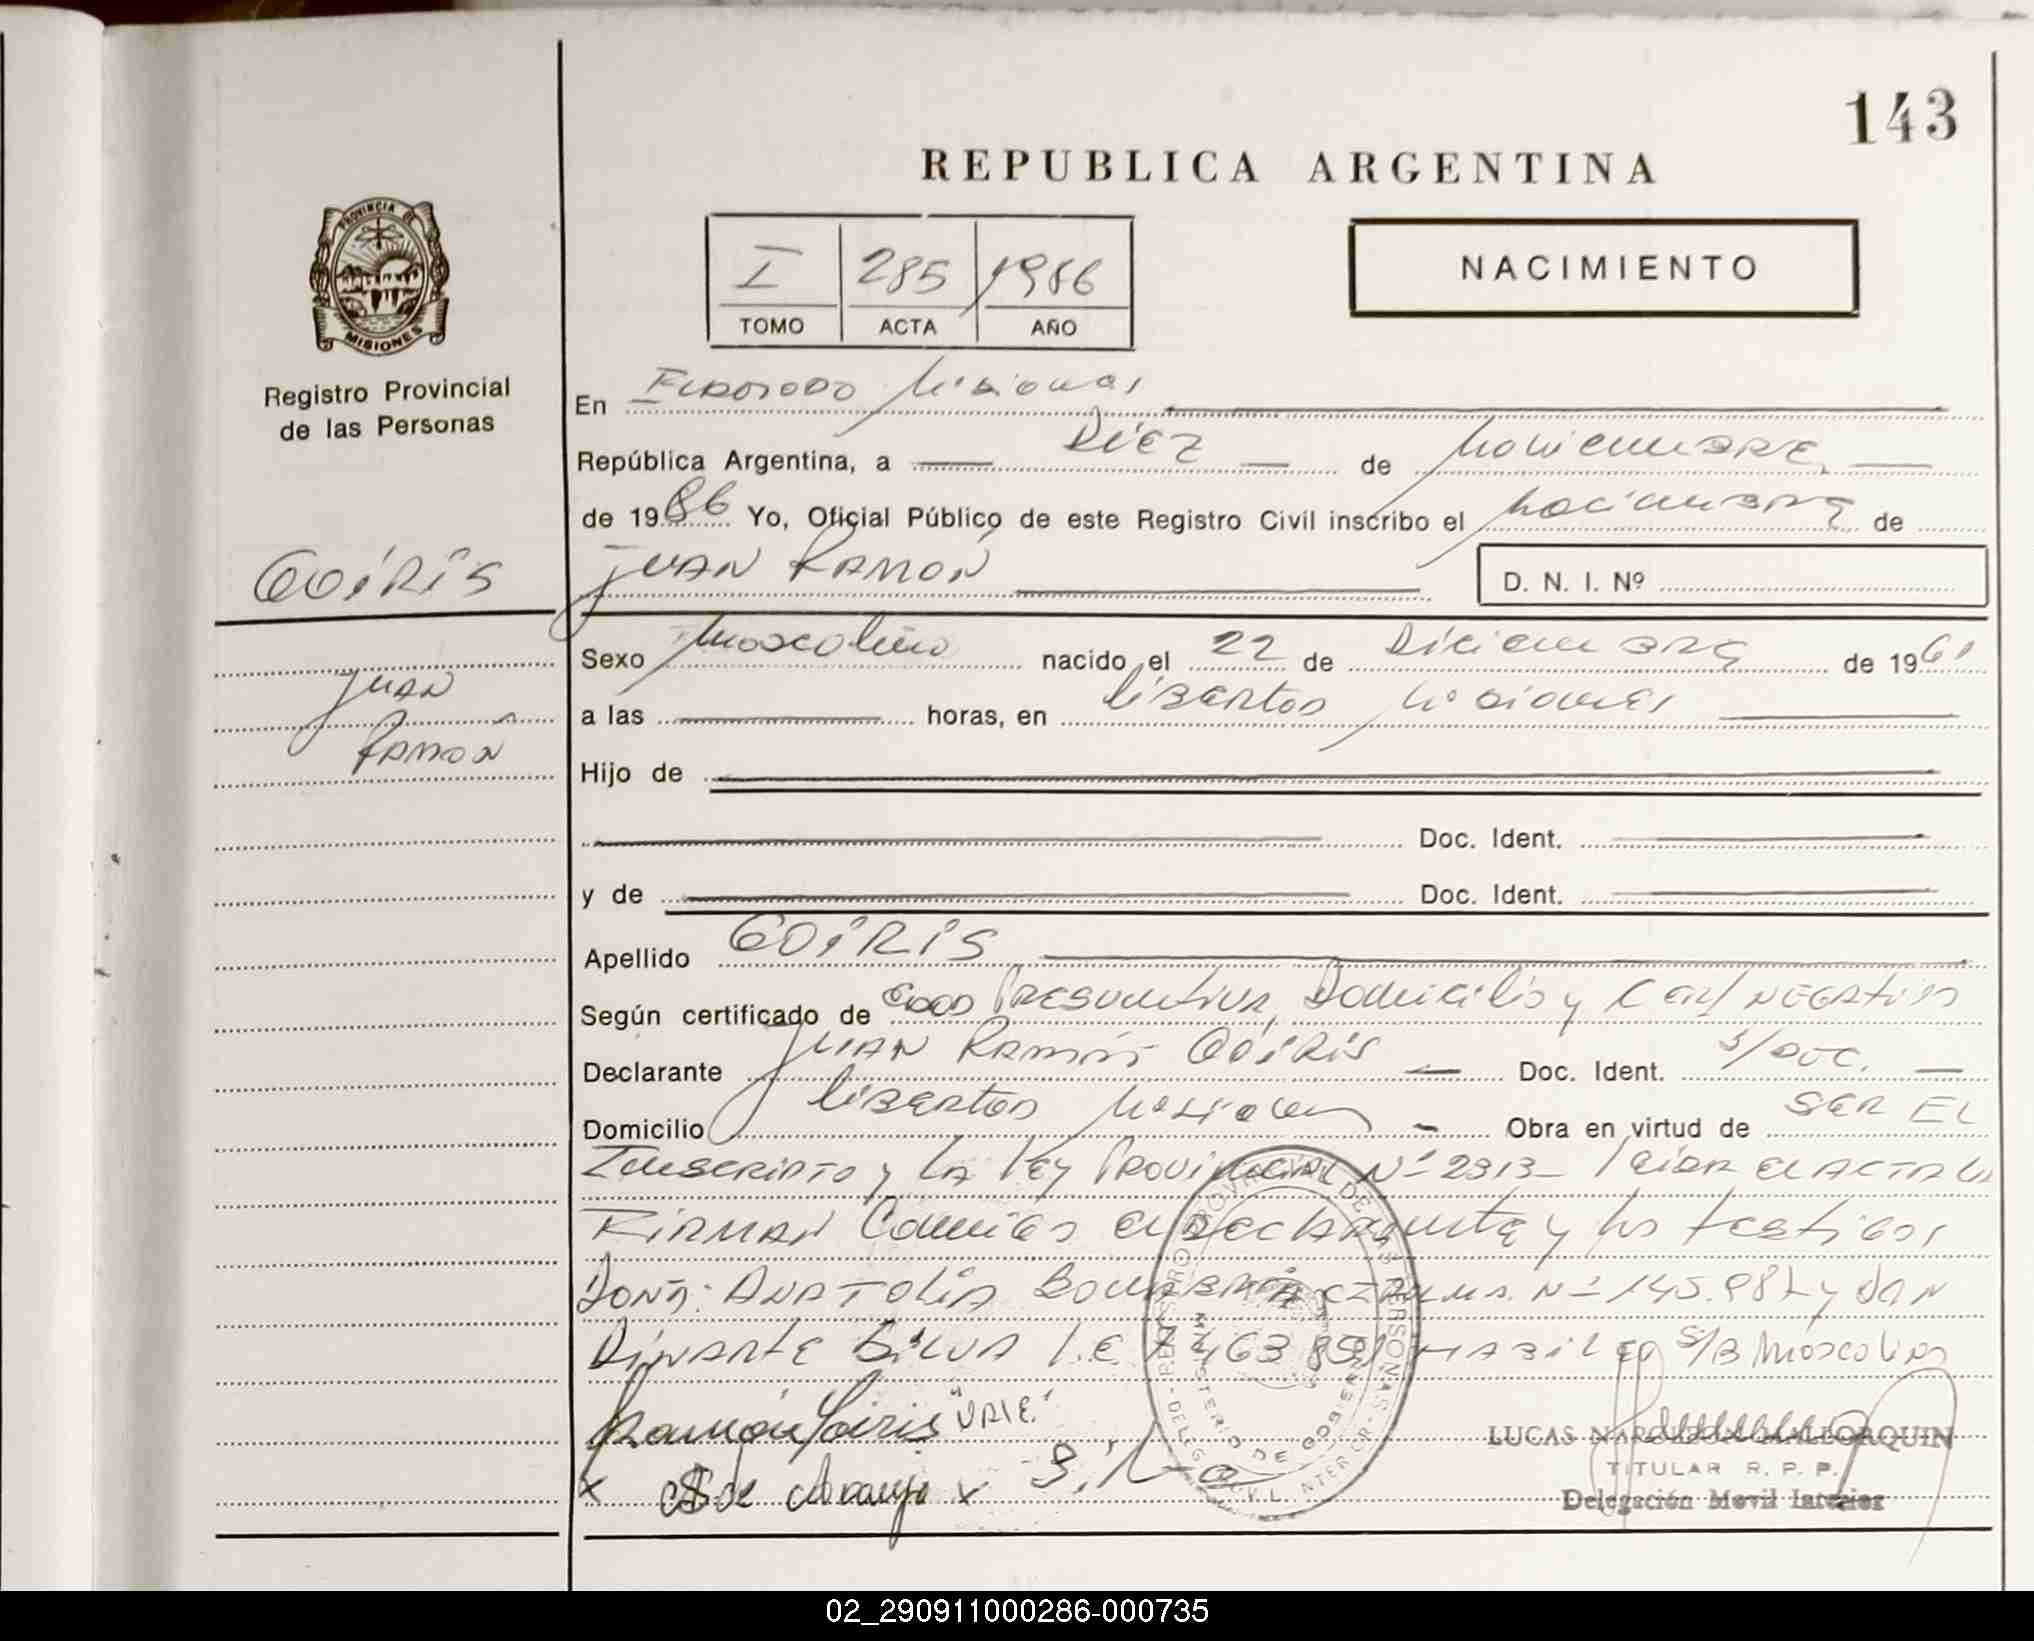 143
REPUBLICA ARGENTINA
PROVINCIA DE
MISIONES
Registro Provincial
de las Personas
I 285 1986
TOMO ACTA AÑO
NACIMIENTO
En Eldorado Misiones
República Argentina, a Diez de Noviembre
de 1986 Yo, Oficial Público de este Registro Civil inscribo el nacimiento de
GOIRIS
JUAN RAMON
D. N. I. Nº
Sexo Masculino nacido el 22 de Diciembre de 1961
JUAN
RAMON
a las horas, en Libertad Misiones
Hijo de
Doc. Ident.
y de Doc. Ident.
Apellido GOIRIS
Según certificado de Edad Presuntiva, Domicilio y Cert/ NEGATIVO
Declarante JUAN RAMON GOIRIS Doc. Ident. S/DOC.
Domicilio Libertad Misiones Obra en virtud de SER EL
Inscripto y LA Ley Provincial Nº 2313 Leida el ACTA la
FIRMAN Conmigo el Declarante y los testigos
DOÑA: ANATOLIA Nº y DON
DINARTE SILVA HABILEO S/B Masculino
Ramón Goiris "VALE"
x de Araujo x Silva
REGISTRO PROVINCIAL DE LAS PERSONAS
MINISTERIO DE GOBIERNO
LUCAS NAPOLEON MALLORQUIN
TITULAR R. P. P.
Delegación Movil Interior
02_290911000286-000735